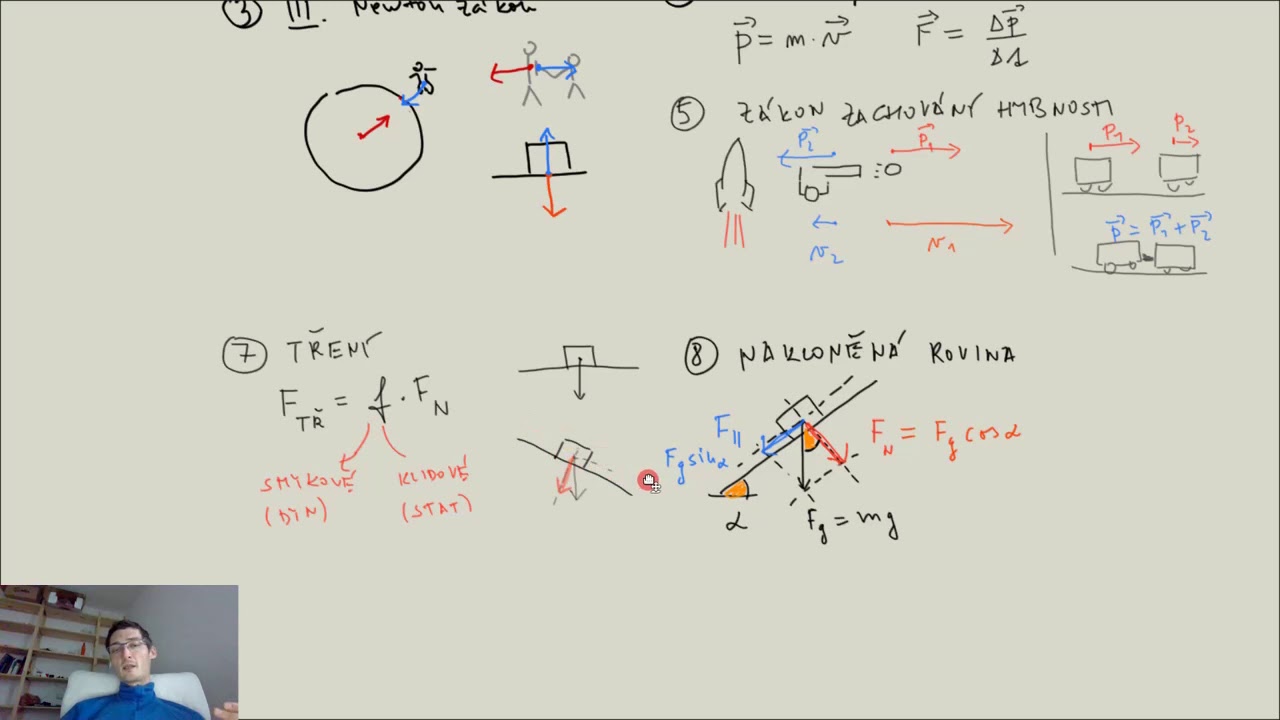 ③ III. Newton zákon
p⃗ = m·v⃗ F⃗ = Δp⃗/Δt
⑤ ZÁKON ZACHOVÁNÍ HYBNOSTI
p⃗₂ p⃗₁
v₂ v₁
p₁ p₂
p⃗ = p⃗₁ + p⃗₂
⑦ TŘENÍ
F_TŘ = f · F_N
SMYKOVÉ
(DYN)
KLIDOVÉ
(STAT)
⑧ NAKLONĚNÁ ROVINA
F_||
F_g sin α
F_N = F_g cos α
α
F_g = mg